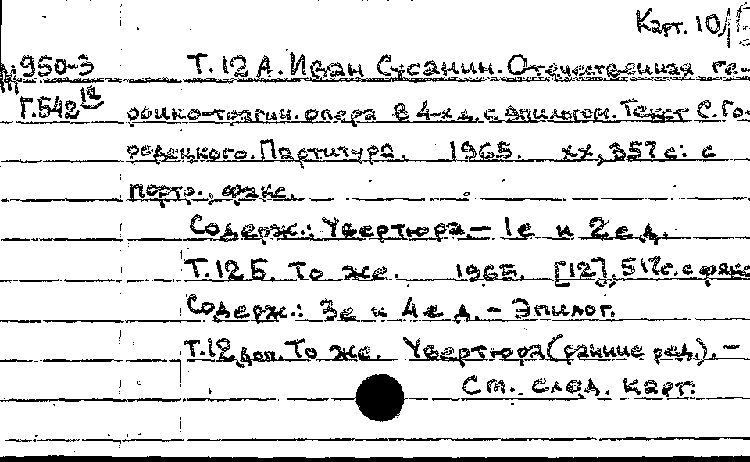 Карт. 10/
М 950-3 Т. 12 А. Иван Сусанин. Отечественная ге-
Г.542 12 роико-трагич. опера в 4-х д. с эпилогом. Текст С. Го-
родецкого. Партитура. 1965. xx, 357 с: с
портр., факс.
Содерж.: Увертюра. – 1е и 2е д.
Т. 12 Б. То же. 1965. [12], 517с. с факс
Содерж.: 3е и 4е д. – Эпилог.
Т. 12 доп. То же. Увертюра (ранние ред.). –
См. след. карт.